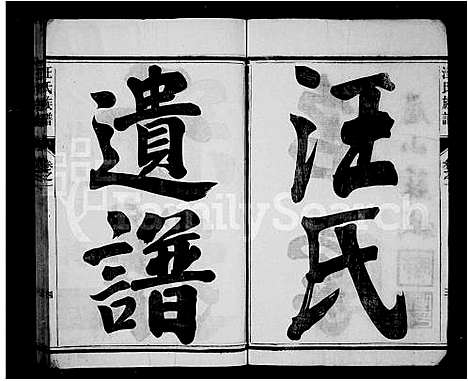 汪氏
遺譜
汪氏族譜
汪氏族譜
FamilySearch